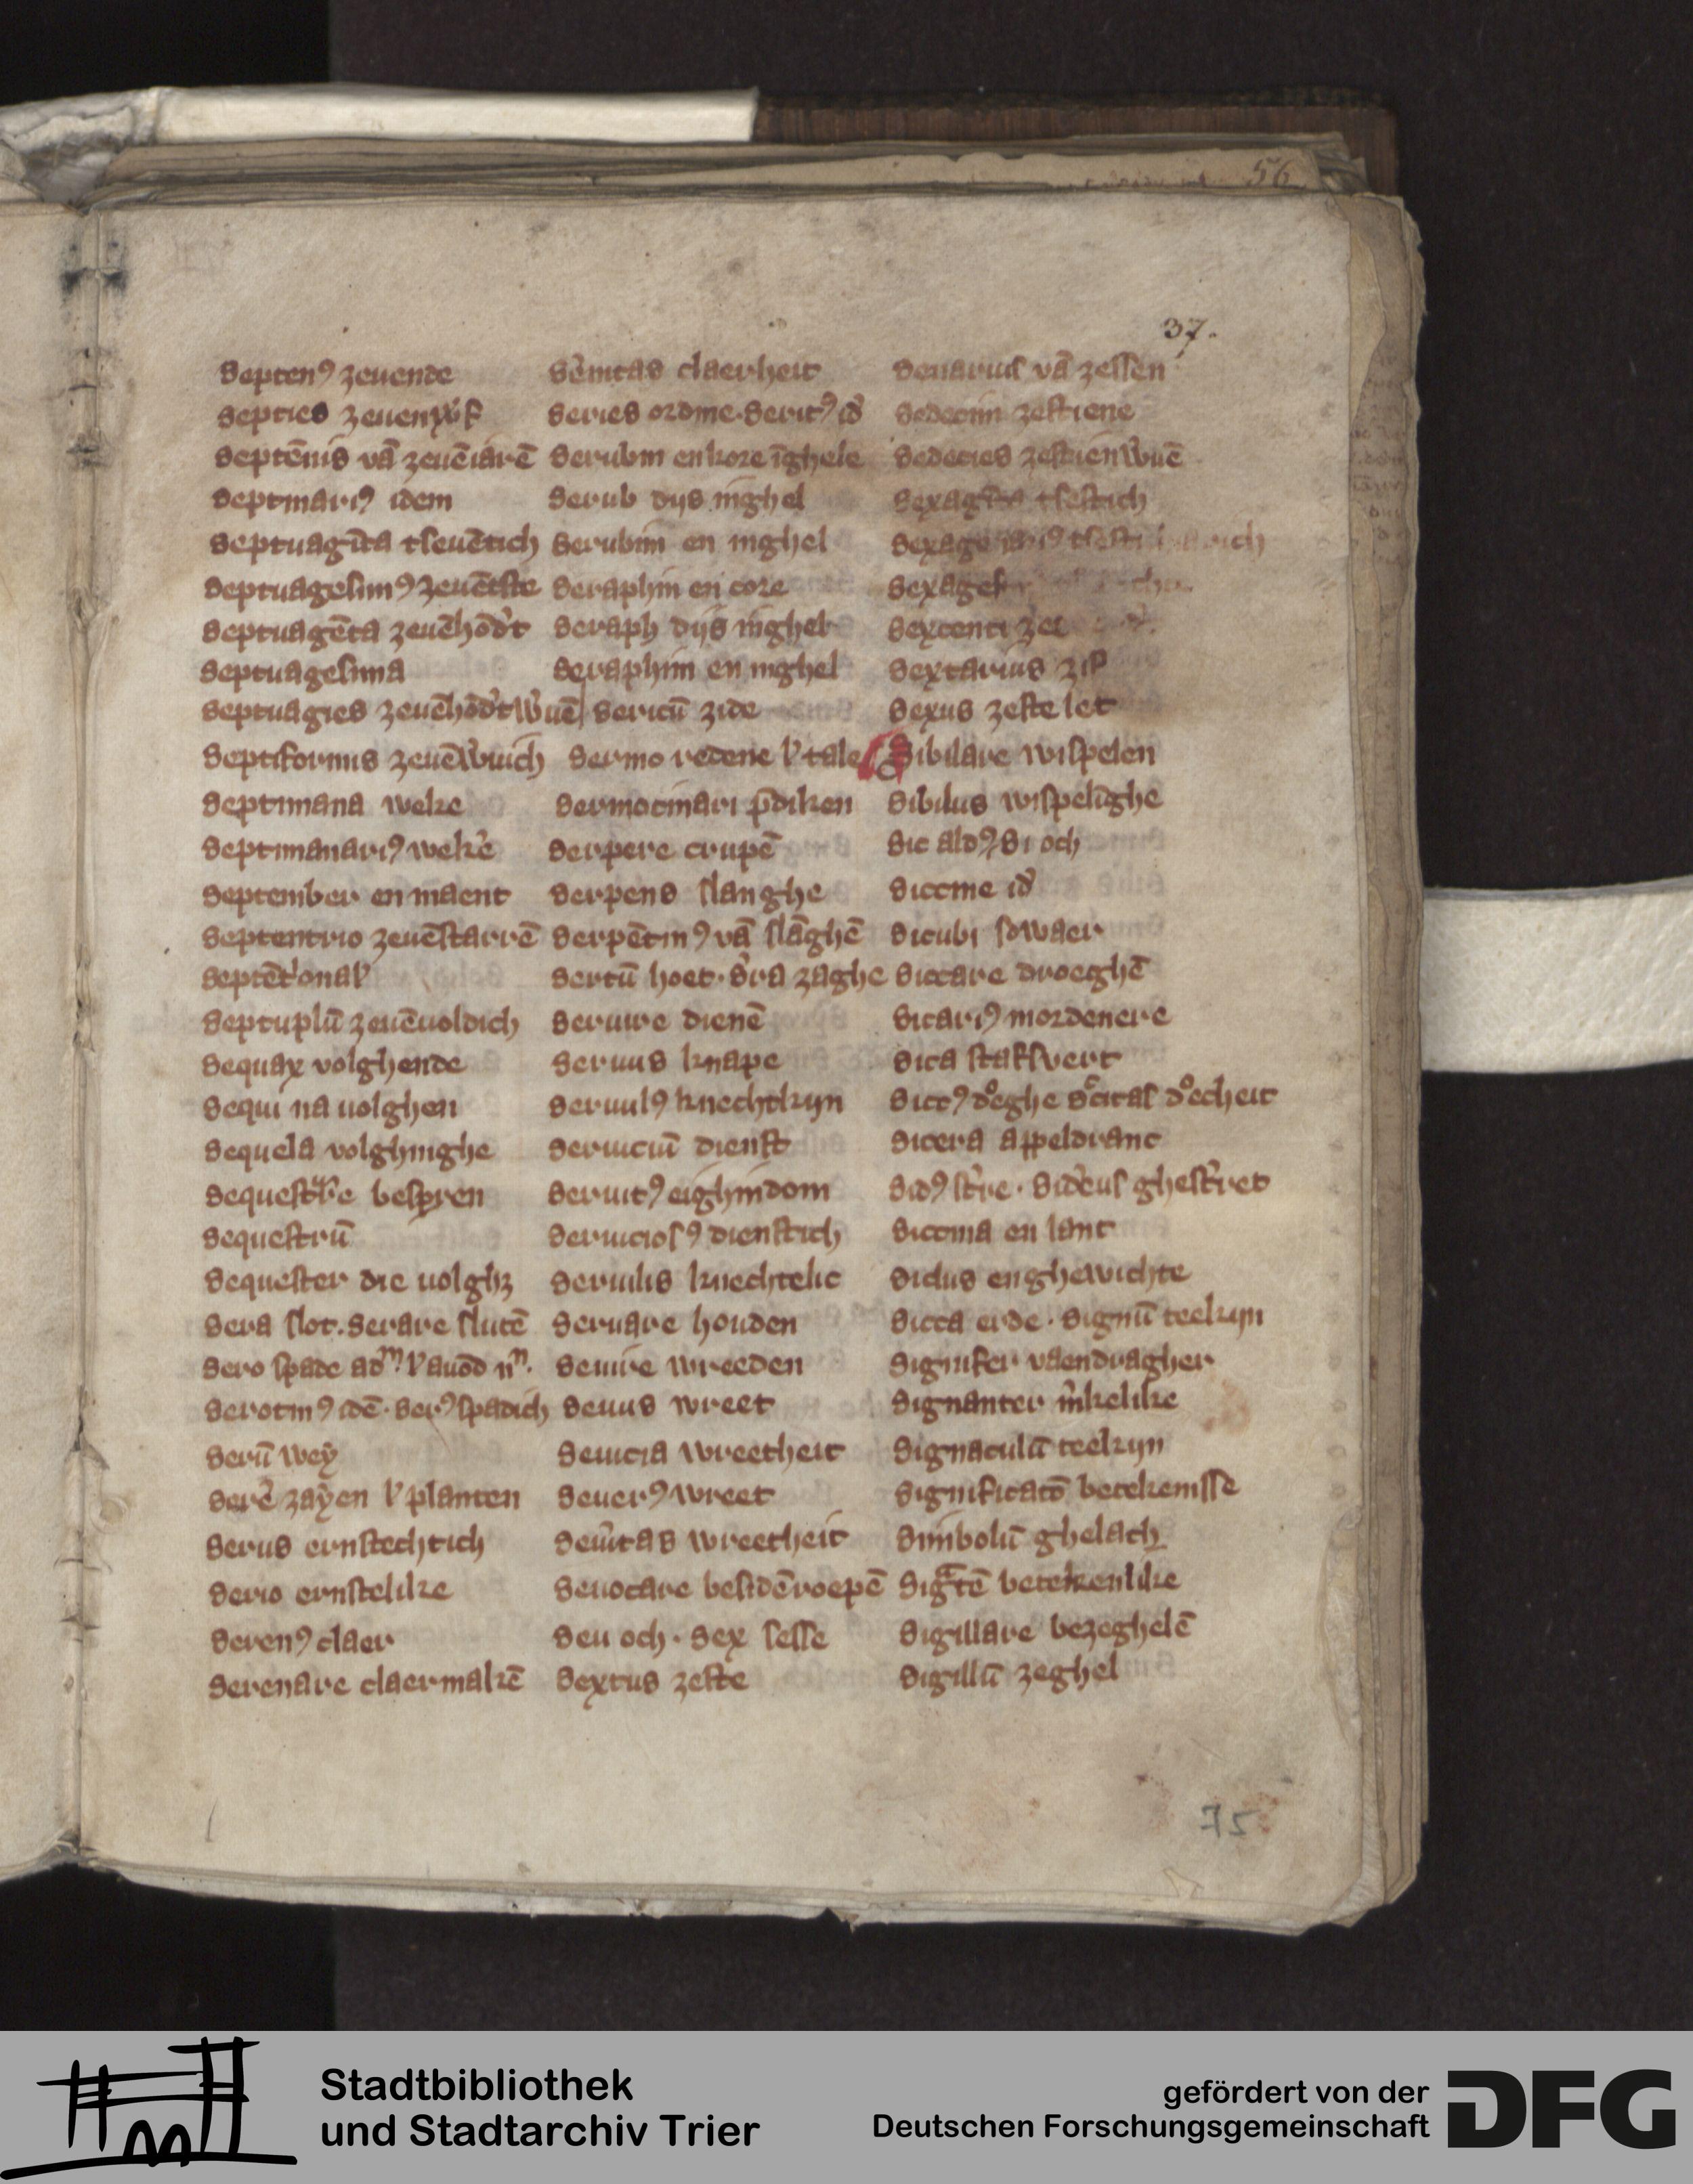 56
37.
Septenꝰ zeuende
Septies zeuenw̉f
Septēnis vā zeuēiarē
Septinariꝰ idem
Septuagīta tseuētich
Septuagesimꝰ zeuētste
Septuagēta zeuēhōd̉t
Septuagesima
Septuagies zeuēhōd̉tw̉uē
Septiformis zeuēw̉uich
Septimana weke
Septimanariꝰ wek̉e
September en maent
Septentrio zeuēstarrē
Septēt̉onal̉
Septuplū zeuēuoldich
Sequax volghende
Sequi na uolghen
Sequela volghinghe
bespren
Sequestrū
Sequester die uolghꝫ
Sera slot. Serare slutē
Sero spade l̉ auōd
Serotinꝰ idē. Serꝰ spadich
Serū wey
Serē zayen l̉ planten
Serus ernstechtich
Serio ernstelike
Serenꝰ claer
Serenare claermakē
S̉enitas claerheit
Series ordine. Seritꝰ id̉
Serubin en kore īghele
Serub dijs inghel
Serubim en inghel
Seraphin en core
Seraph dijs inghel
Seraphim en inghel
Sericū zide
Sermo redene l̉ tale
Sermocinari p̄diken
Serpere crupē
Serpens slanghe
Serpētinꝰ vā slāghē
Sertū hoet. S̉ra zaghe
Seruire dienē
Seruus knape
Seruulꝰ knechtkijn
Seruiciū dienst
Seruitꝰ eighindom
Seruiciosꝰ dienstich
Seruilis knechtelic
Seruare houden
Seuire wreeden
Seuus wreet
Seuicia wreetheit
Seuerꝰ wreet
Seủitas wreetheit
Seuocare besidēroepē
Seu och. Sex sesse
Sextus zeste
Senarius vā zessen
Sedecim zestiene
Sedecies zestienw̉uē
tsestich
Sexcenti
Sextarius
Sexus zeste let
Sibilare wispelen
Sibilus wispelīghe
Sic aldꝰ. Si och
Siccine id̉
Sicubi sowaer
Siccare droeghē
Sicariꝰ mordenere
Sica stafsvert
Siccꝰ dͦeghe S̉citas dͦecheit
Sicera appeldranc
Sidꝰ st̉re. Sid̉eus ghest̉ret
Siccina en lant
Siclus en ghewichte
Sicca erde. Signū teekijn
Signifer vaendragher
Signanter m̉kelike
Signaculū teekijn
Significatō betekenisse
Simbolū ghelach
betekenlike
Sigillare bezeghelē
Sigillū zeghel
Stadtbibliothek
und Stadtarchiv Trier
gefördert von der
Deutschen Forschungsgemeinschaft
DFG